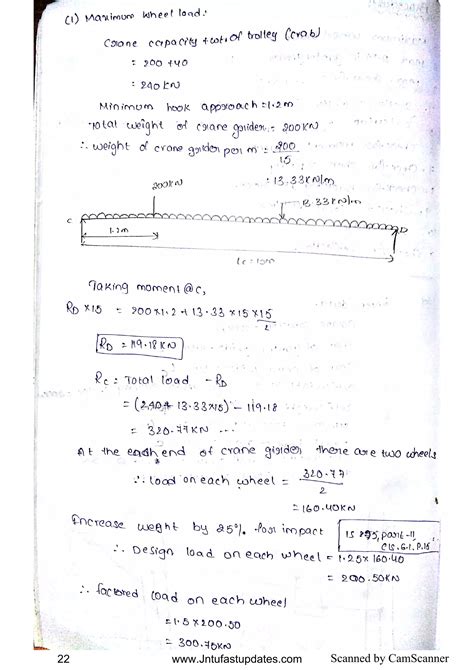 (1) Maximum wheel load:
Crane capacity + wt. of trolley (crab)
= 200 + 40
= 240 KN
Minimum hook approach = 1.2m
Total weight of crane grider = 200KN
∴ weight of crane grider per m = 200/15
= 13.33KN/m
200KN
13.33KN/m
C
D
1.2m
Lc = 15m
Taking moment @ C,
RD × 15 = 200×1.2 + 13.33 × 15 × 15/2
RD = 119.18 KN
Rc = Total load - RD
= (240+ 13.33×15) - 119.18
= 320.77KN
At the each end of crane girider there are two wheels
∴ load on each wheel = 320.77/2
= 160.40KN
Increase weight by 25% for impact
IS 875, part-II
Cls.6.1, P.15
∴ Design load on each wheel = 1.25× 160.40
= 200.50KN
∴ factored load on each wheel
= 1.5 × 200.50
= 300.75KN
22
www.Jntufastupdates.com
Scanned by CamScanner